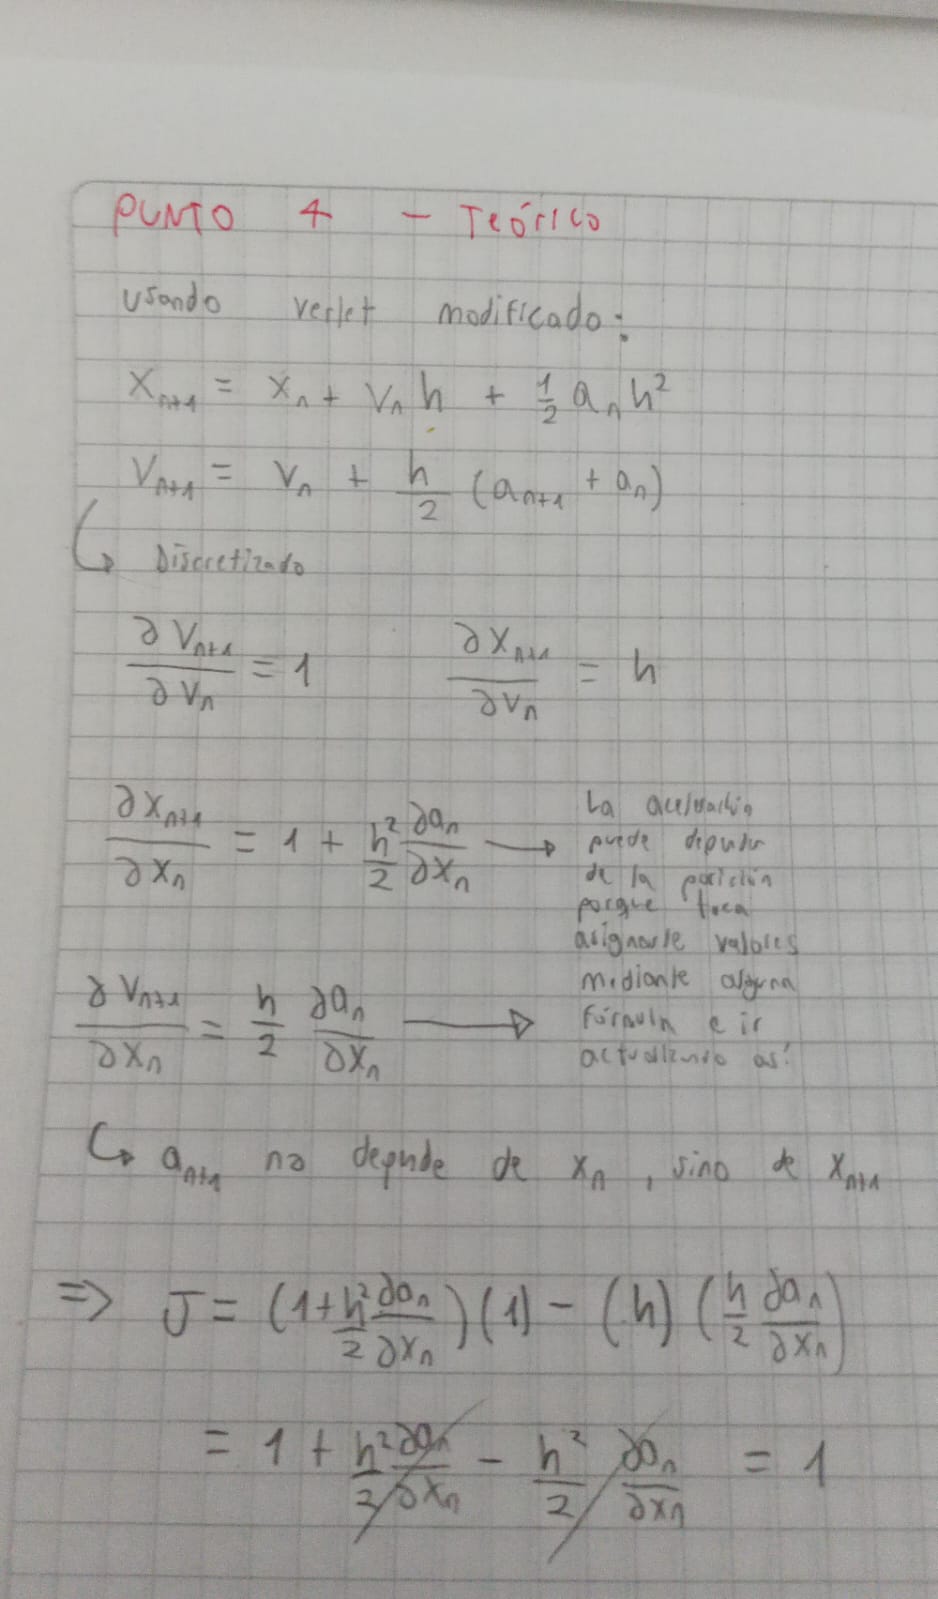 PUNTO 4 - TEÓRICO
Usando verlet modificado:
X_{n+1} = X_n + V_n h + 1/2 a_n h^2
V_{n+1} = V_n + h/2 (a_{n+1} + a_n)
↳ Discretizado
∂V_{n+1}/∂V_n = 1    ∂X_{n+1}/∂V_n = h
∂X_{n+1}/∂X_n = 1 + h^2/2 ∂a_n/∂X_n →
La
puede
de la posición
porque toca
asignarle valores
mediante alguna
fórmula e ir
así
∂V_{n+1}/∂X_n = h/2 ∂a_n/∂X_n →
↳ a_{n+1} no depnde de X_n, sino de X_{n+1}
=> J = (1 + h^2/2 ∂a_n/∂X_n)(1) - (h)(h/2 ∂a_n/∂X_n)
= 1 + h^2/2 ∂a_n/∂X_n - h^2/2 ∂a_n/∂X_n = 1